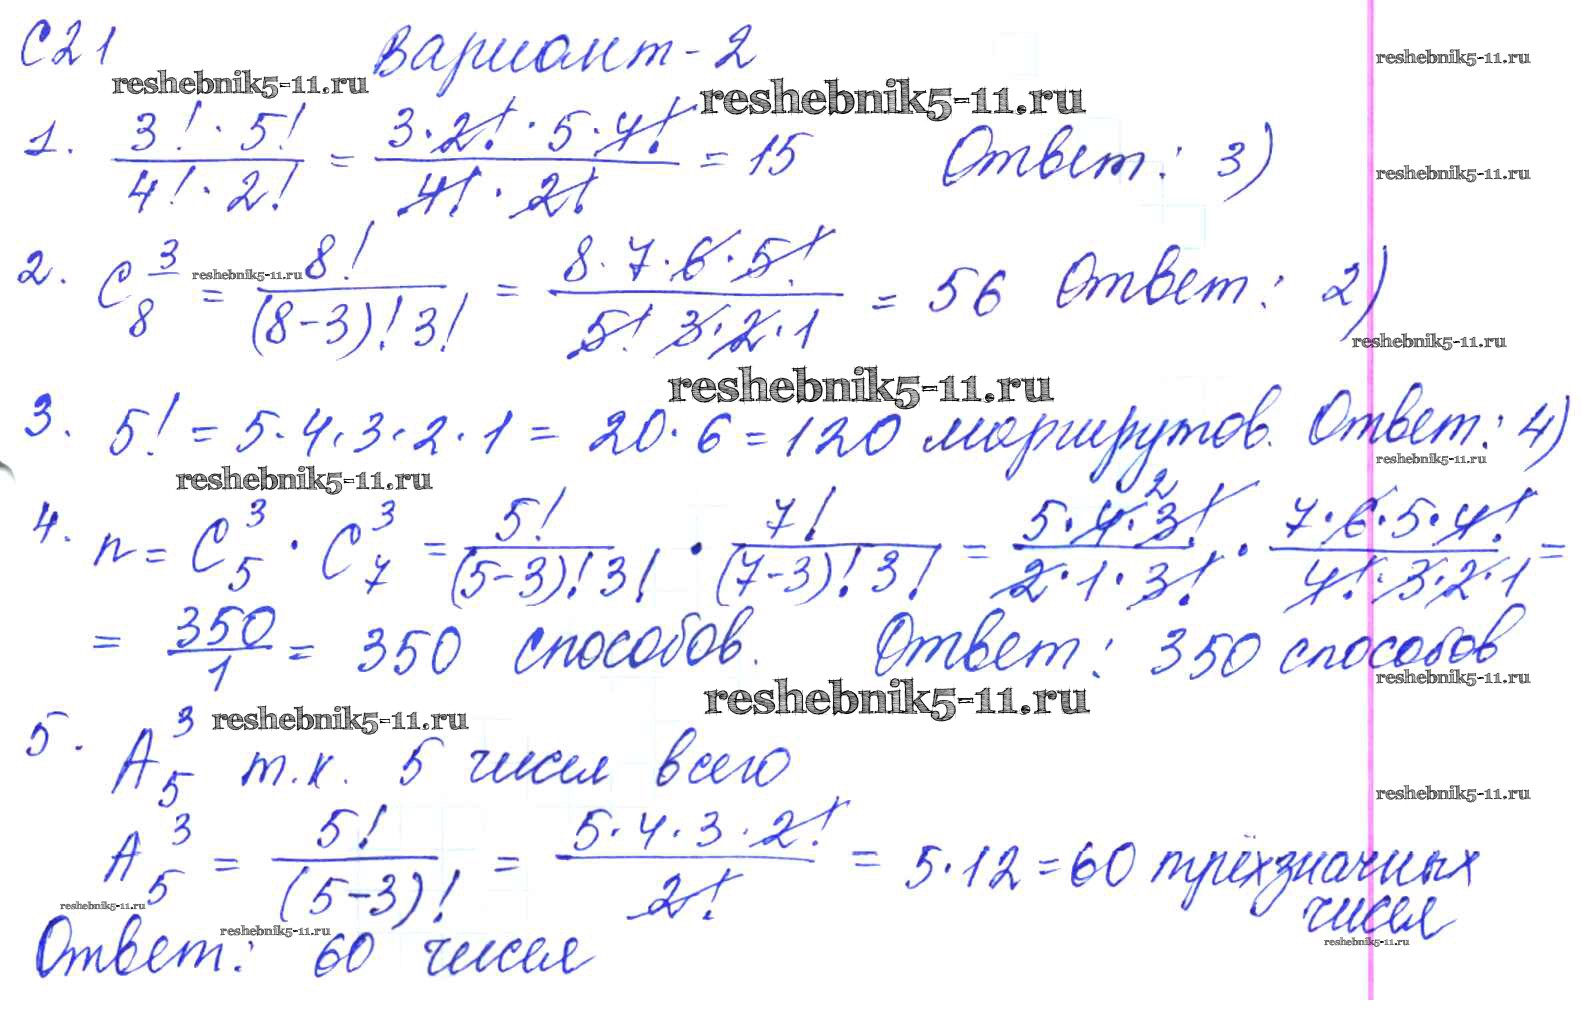 С21 Вариант-2
reshebnik5-11.ru
reshebnik5-11.ru
reshebnik5-11.ru
1. 3! · 5! / 4! · 2! = 3 · 2! · 5 · 4! / 4! · 2! = 15 Ответ: 3)
reshebnik5-11.ru
2. C₈³ = 8! / (8-3)! 3! = 8 · 7 · 6 · 5! / 5! 3 · 2 · 1 = 56 Ответ: 2)
reshebnik5-11.ru
reshebnik5-11.ru
reshebnik5-11.ru
3. 5! = 5 · 4 · 3 · 2 · 1 = 20 · 6 = 120 маршрутов. Ответ: 4)
reshebnik5-11.ru
reshebnik5-11.ru
4. n = C₅³ · C₇³ = 5! / (5-3)! 3! · 7! / (7-3)! 3! = 5 · 4² · 3! / 2 · 1 · 3! · 7 · 6 · 5 · 4! / 4! · 3 · 2 · 1 =
= 350 / 1 = 350 способов. Ответ: 350 способов
reshebnik5-11.ru
reshebnik5-11.ru
reshebnik5-11.ru
5. A₅³ т.к. 5 чисел всего
reshebnik5-11.ru
A₅³ = 5! / (5-3)! = 5 · 4 · 3 · 2! / 2! = 5 · 12 = 60 трёхзначных
чисел
reshebnik5-11.ru
reshebnik5-11.ru
reshebnik5-11.ru
Ответ: 60 чисел